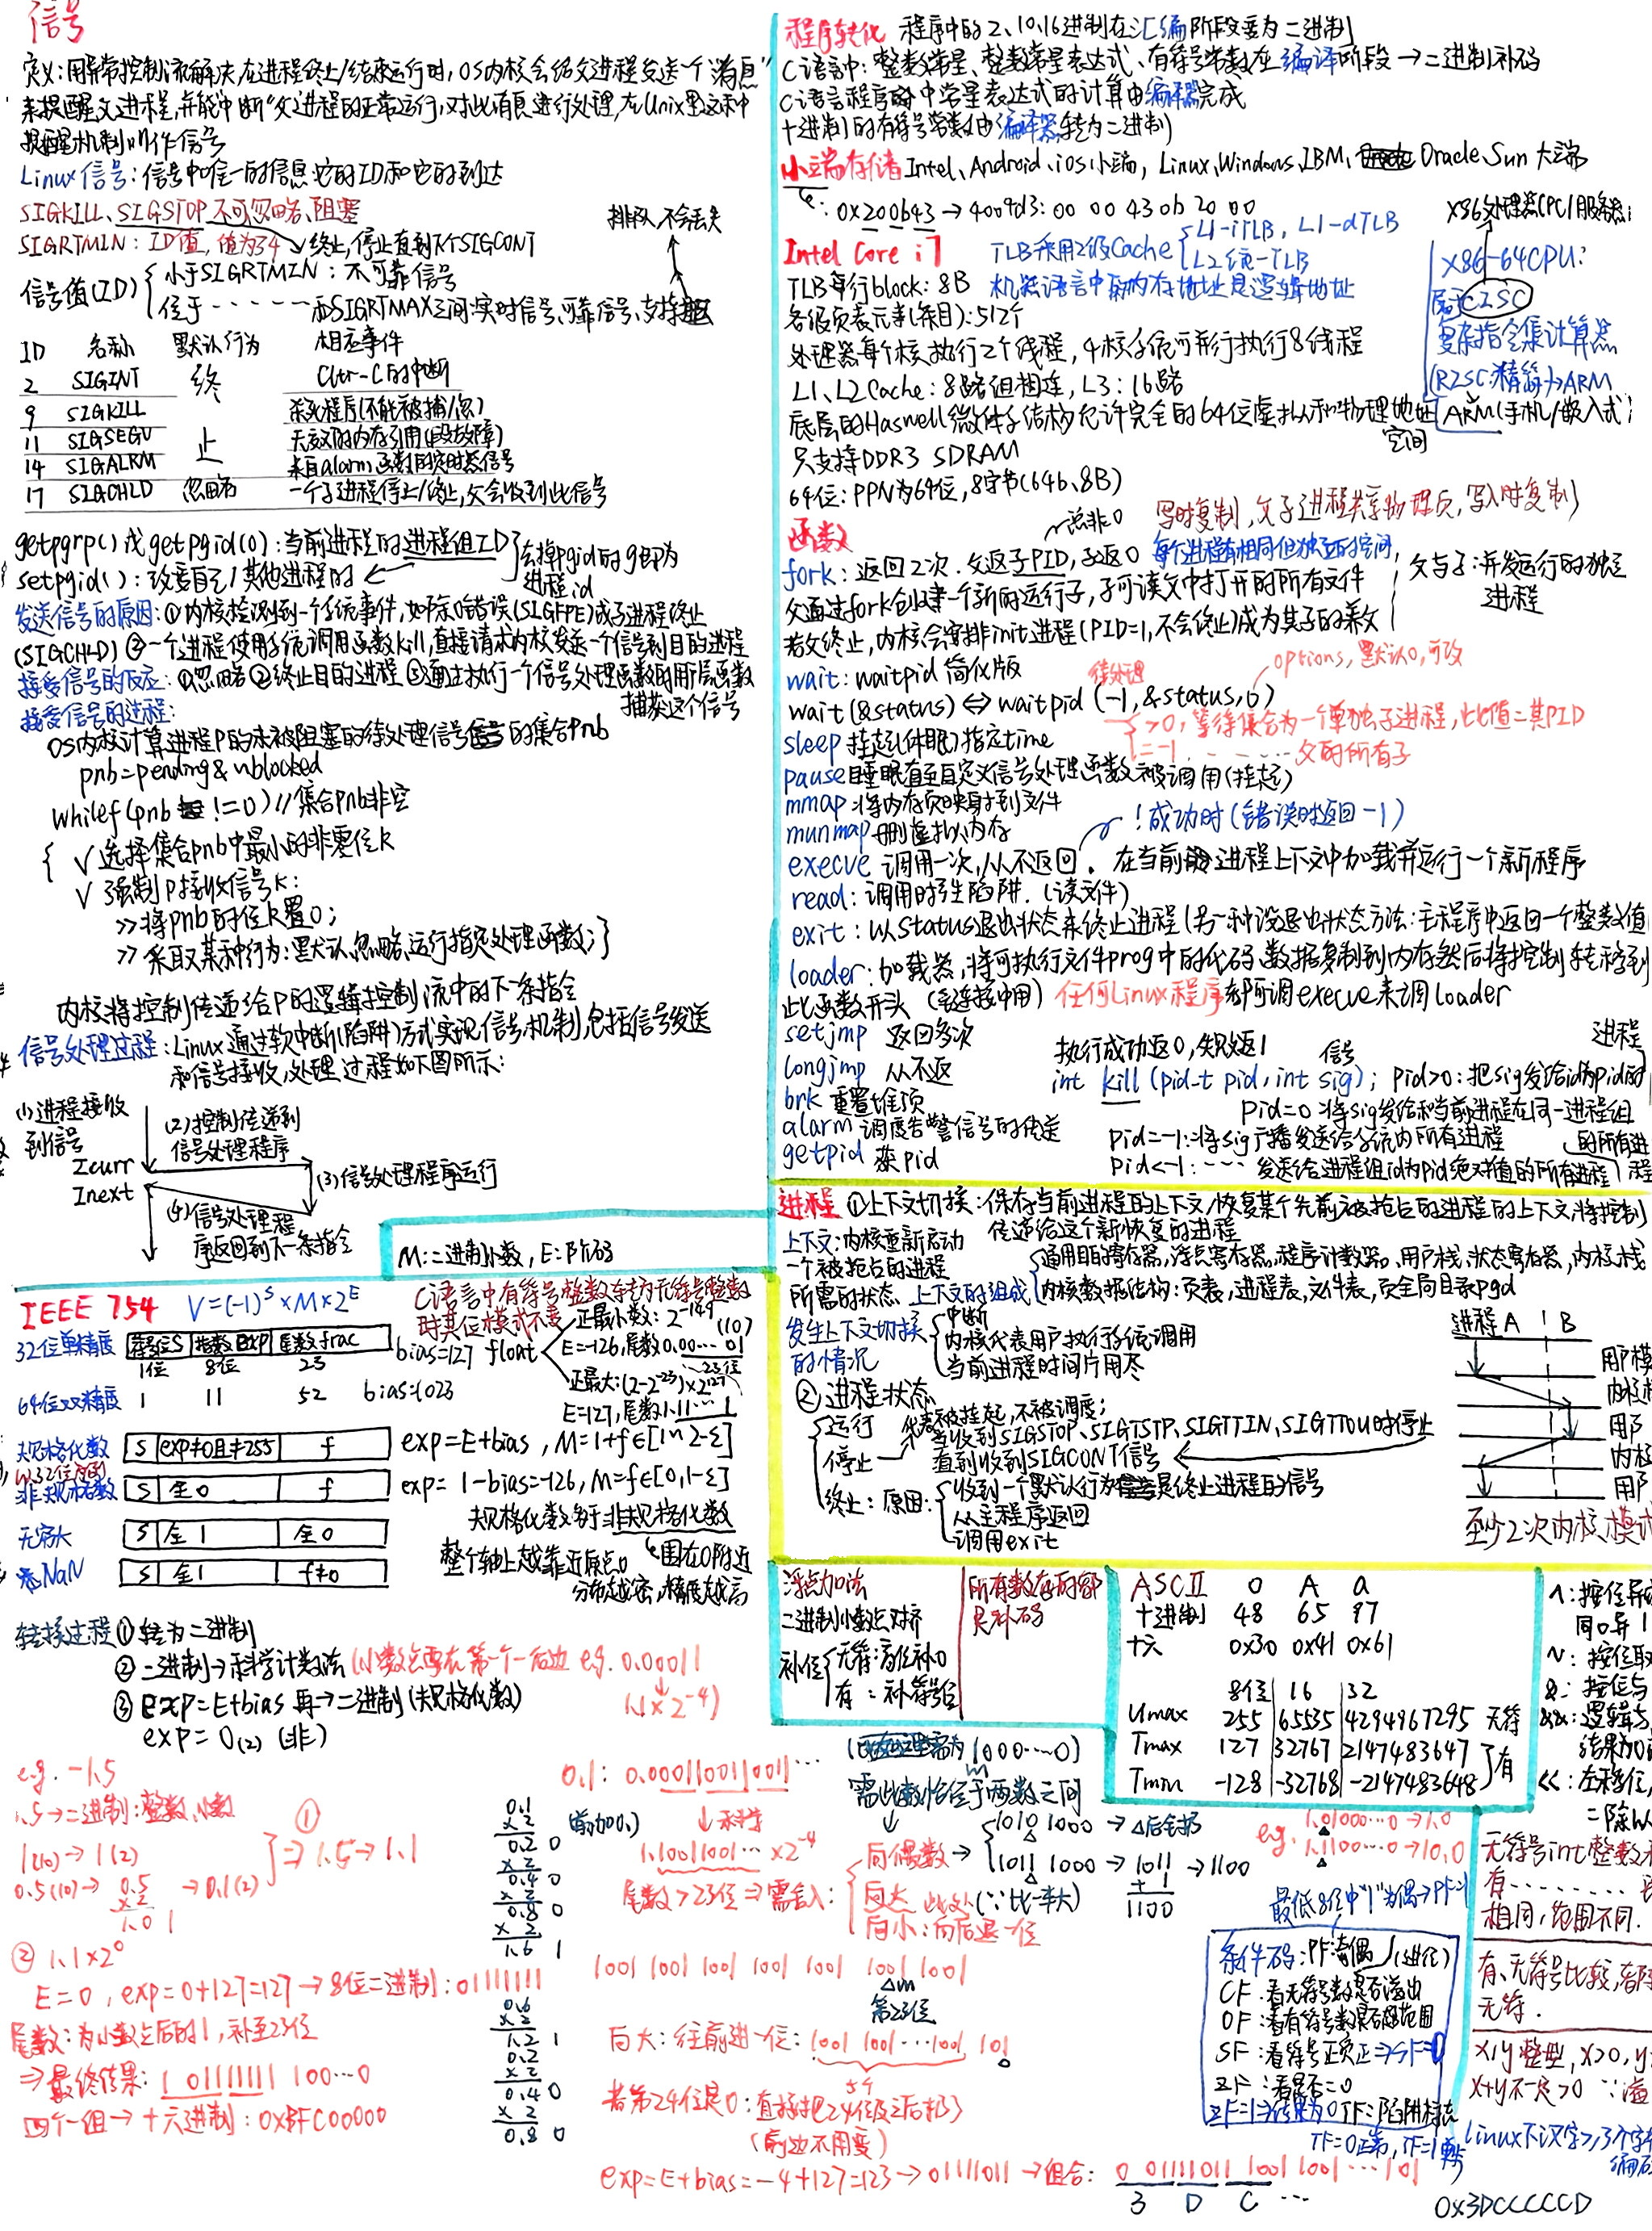 信号
定义:用异常控制流解决,在进程终止/结束运行时,OS内核会给父进程发送一个"消息"
来提醒父进程,并能"中断"父进程的正常运行,对此有良进行处理,在Unix里这种
提醒机制叫作信号
Linux信号:信号中唯一的信息它的ID和它的到达
SIGKILL、SIGSTOP不可忽略、阻塞
SIGRTMIN:ID值,值为34
终止,停止直到下个SIGCONT
排队不会丢失
信号值(ID)
小于SIGRTMIN:不可靠信号
位于······和SIGRTMAX之间:实时信号、可靠信号、支持排队
ID 名称 默认行为 相应事件
2 SIGINT 终 Ctrl-C的中断
9 SIGKILL 杀死程序(不能被捕/忽)
11 SIGSEGV 止 无效的内存引用(段故障)
14 SIGALRM 来自alarm函数的定时器信号
17 SIGCHLD 忽略 一个子进程停止/终止,父会收到此信号
getpgrp()或getpgid(0):当前进程的进程组ID
setpgid():改变自己/其他进程的
去掉pgid的g即为
进程id
发送信号的原因:①内核检测到一个系统事件,如除0错误(SIGFPE)或子进程终止
(SIGCHLD)②一个进程使用系统调用函数kill,直接请求内核发送一个信号到目的进程
接受信号的反应:①忽略②终止目的进程③通过执行一个信号处理函数的用户层函数
捕获这个信号
接受信号的过程:
OS内核计算进程P的未被阻塞的待处理信号的集合pnb
pnb=pending&~blocked
whilef(pnb !=0) //集合pnb非空
{ √ 选择集合pnb中最小的非零位k
√ 强制P接收信号k:
>> 将pnb的位k置0;
>> 采取某种行为:默认、忽略、运行指定处理函数;}
内核将控制传递给P的逻辑控制流中的下一条指令
信号处理过程:Linux通过软中断(陷阱)方式实现信号机制,包括信号发送
和信号接收,处理过程如下图所示:
(1)进程接收
到信号
(2)控制传递到
信号处理程序
Icurr
Inext
(3)信号处理程序运行
(4)信号处理程
序返回到下一条指令
M:二进制小数,E:阶码
IEEE 754 V=(-1)^S×M×2^E
C语言中有符号整数转为无符号整数
时其位模式不变
32位单精度 符号位S 指数EXP 尾数frac
1位 8位 23
bias=127 float
正最小数:2^-149 (10)
E=-126,尾数0.00···01
23位
正最大:(2-2^-23)×2^127
E=127,尾数1.11···1
64位双精度 1 11 52 bias=1023
规格化数 S exp≠0且≠255 f exp=E+bias,M=1+f∈[1~2-ε]
以32位为例
非规格数 S 全0 f exp=1-bias=-126,M=f∈[0,1-ε]
规格化数多于非规格化数
无穷大 S 全1 全0
整个轴上越靠近原点0
围在0附近
NaN S 全1 f≠0
分布越密,精度越高
转换过程 ①转为二进制
②二进制→科学计数法 (小数点要在第一个1后边 e.g. 0.00011
1.1×2^-4)
③exp=E+bias 再→二进制(规格化数)
exp=0(2) (非)
e.g. -1.5
1.5→二进制:整数、小数
1(10)→1(2)
0.5(10)→ 0.5
×2
1.0 1
→0.1(2)
① ⇒1.5→1.1
② 1.1×2^0
E=0,exp=0+127=127→8位二进制:01111111
尾数:为小数点后的1,补至23位
⇒最终结果:1 01111111 100···0
四个一组→十六进制:0xBFC00000
0.1
×2
0.2 0
×2
0.4 0
×2
0.8 0
×2
1.6 1
0.6
×2
1.2 1
0.2
×2
0.4 0
×2
0.8 0
0.1: 0.0001100110011···
(前加0.)
↓科学
1.10011001···×2^-4
尾数>23位⇒需舍入:
向偶数→
向大 此处(∵比一半大)
向小:向后退一位
1000···0)
需此数恰位于两数之间
1010 1000 → △后舍掉
1011 1000 → 1011 → 1100
+ 1
1100
e.g. 1.01000···0→1.0
1.11000···0→10.0
1001 1001 1001 1001 1001 1001 1001
△m
第23位
向大:往前进一位:1001 1001···1001 101
5个
若第24位是0:直接把24位及之后扔了
(前边不用变)
exp=E+bias=-4+127=123→01111011→组合:0 01111011 1001 1001···101
3 D C ···
0x3DCCCCCD
程序转化 程序中的2、10、16进制在汇编阶段变为二进制
C语言中:整数常量、整数常量表达式、有符号常数在编译阶段→二进制补码
C语言程序中常量表达式的计算由编译器完成
十进制的有符号常数由编译器转为二进制
小端存储 Intel、Android、iOS小端,Linux、Windows、IBM、Oracle、Sun大端
:0x200b43→4009d3:00 00 43 0b 20 00
Intel Core i7
TLB采用2级Cache
L1-iTLB,L1-dTLB
L2统一TLB
TLB每行block:8B 机器语言中的内存地址是逻辑地址
各级页表元素(条目):512个
处理器每个核执行2个线程,4核系统可并行执行8线程
L1、L2 Cache:8路组相连,L3:16路
底层的Haswell微体系结构允许完全的64位虚拟和物理地址
空间
只支持DDR3 SDRAM
64位:PPN为64位,8字节(64b、8B)
X86处理器(PC/服务器)
X86-64CPU:
属于CISC
复杂指令集计算器
(RISC:精简)→ARM
ARM(手机/嵌入式)
函数
总非0
写时复制,父子进程共享物理页,写入时复制
fork:返回2次.父返子PID,子返0 每个进程有相同但独立的空间
父通过fork创建一个新的运行子,子可读父中打开的所有文件
若父终止,内核会安排init进程(PID=1,不会终止)成为其子的养父
父与子:并发运行的独立
进程
wait:waitpid简化版
待处理
options,默认0,可改
wait(&status)⇔waitpid(-1,&status,0)
>0,等待集合为一个单独子进程,此值=其PID
=-1······父的所有子
sleep 挂起(休眠)指定time
pause 睡眠直至自定义信号处理函数被调用(挂起)
mmap:将内存页映射到文件
munmap 删虚拟内存
!成功时(错误时返回-1)
execve 调用一次,从不返回.在当前进程上下文中加载并运行一个新程序
read:调用时产生陷阱.(读文件)
exit:以status退出状态来终止进程(另一种设退出状态方法:主程序中返回一个整数值
loader:加载器,将可执行文件prog中的代码、数据复制到内存然后将控制转移到
此函数开头 任何Linux程序都可调execve来调loader
setjmp 返回多次
longjmp 从不返
执行成功返0,失败返1
信号
进程
int kill (pid_t pid, int sig); pid>0:把sig发给id为pid的
brk 重置堆顶
pid=0:将sig发给和当前进程在同一进程组
的所有进
程
alarm 调度告警信号的传送
pid=-1:将sig广播发送给系统内所有进程
getpid 获pid
pid<-1:···· 发送给进程组id为pid绝对值的所有进程
进程 ①上下文切换:保存当前进程的上下文/恢复某个先前被抢占的进程的上下文/将控制
传递给这个新恢复的进程
上下文:内核重新启动
一个被抢占的进程
所需的状态
上下文的组成
通用目的寄存器,浮点寄存器,程序计数器、用户栈、状态寄存器,内核栈
内核数据结构:页表,进程表,文件表,页全局目录pgd
发生上下文切换
的情况
中断
内核代表用户执行系统调用
当前进程时间片用尽
进程A B
用户模
内核模
用户
内核
用户
至少2次内核模式
② 进程状态
运行
停止
代表被挂起,不被调度;
当收到SIGSTOP、SIGTSTP、SIGTTIN、SIGTTOU时停止
直到收到SIGCONT信号
终止:原因:
收到一个默认行为是终止进程的信号
从主程序返回
调用exit
浮点加法
二进制小数点对齐
补位
无符:高位补0
有:补符号位
所有数在内部
是补码
ASCII 0 A a
十进制 48 65 97
十六 0x30 0x41 0x61
8位 16 32
Umax 255 65535 4294967295 无符
Tmax 127 32767 2147483647
Tmin -128 -32768 -2147483648
有
^:按位异或
同0异1
~:按位取
&:按位与
&&:逻辑与
结果为0
<<:左移位
最低8位中"1"为偶→PF=1
条件码:PF:奇偶 (进位)
CF:看无符号数是否溢出
OF:看有符号数是否超范围
SF:看符号正负 正⇒SF=0
ZF:看是否=0
ZF=1⇒结果为0 TF:陷阱标志
TF=0正常,TF=1单步
无符号int整数
有········
相同,范围不同.
有、无符号比较,
无符.
x,y整型,x>0,y
x+y不一定>0 ∵溢
Linux下汉字≥3个字
编码